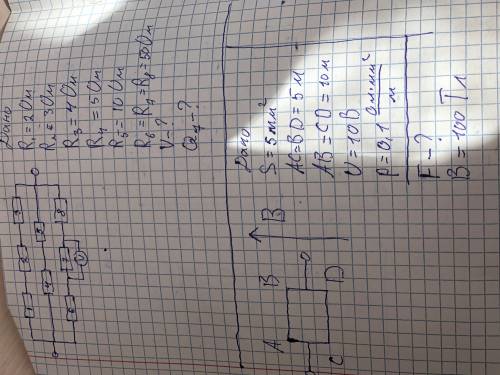 Дано
R₁=2Ом
R₂=3Ом
R₃=4Ом
R₄=5Ом
R₅=10Ом
R₆=R₇=R₈=50Ом
V-?
1
2
3
4
5
6
7
8
V
Дано
S=5мм²
AC=BD=5м
AB=CD=10м
U=10В
ρ=0,1 Ом·мм²/м
F-?
B=100Тл
A
B
B
C
D